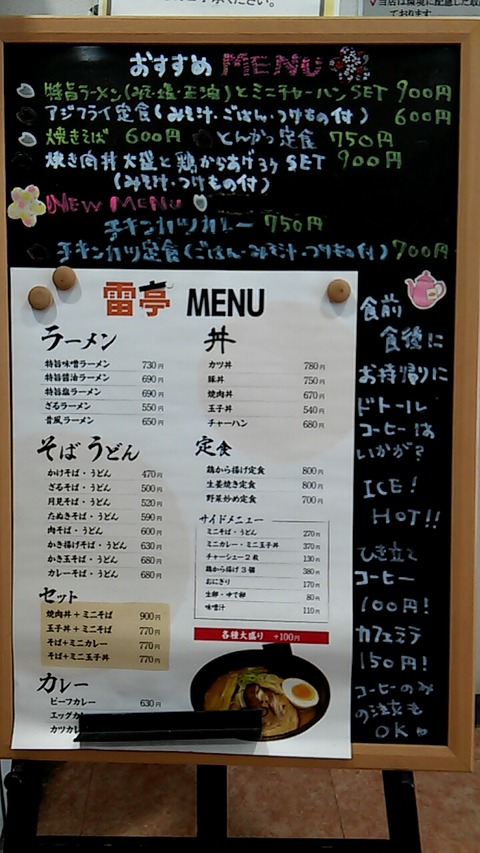 おすすめ MENU
特旨ラーメン(みそ・塩・正油)とミニチャーハンSET 900円
アジフライ定食(みそ汁・ごはん・つけもの付) 600円
焼きそば 600円 とんかつ定食 750円
焼き肉丼大盛と鶏からあげ3ヶSET 900円
(みそ汁・つけもの付)
NEW MENU
チキンカツカレー 750円
チキンカツ定食(ごはん・みそ汁・つけもの付) 700円
雷亭 MENU
ラーメン
特旨味噌ラーメン 730円
特旨醤油ラーメン 690円
特旨塩ラーメン 690円
ざるラーメン 550円
昔風ラーメン 650円
そば うどん
かけそば・うどん 470円
ざるそば・うどん 500円
月見そば・うどん 520円
たぬきそば・うどん 590円
肉そば・うどん 600円
かき揚げそば・うどん 630円
かき玉そば・うどん 680円
カレーそば・うどん 680円
セット
焼肉丼+ミニそば 900円
玉子丼+ミニそば 770円
そば+ミニカレー 770円
そば+ミニ玉子丼 770円
カレー
ビーフカレー 630円
エッグカ
カツカレ
丼
カツ丼 780円
豚丼 750円
焼肉丼 670円
玉子丼 540円
チャーハン 680円
定食
鶏から揚げ定食 800円
生姜焼き定食 800円
野菜炒め定食 700円
サイドメニュー
ミニそば・うどん 270円
ミニカレー・ミニ玉子丼 370円
チャーシュー2枚 130円
鶏から揚げ3個 380円
おにぎり 170円
生卵・ゆで卵 80円
味噌汁 110円
各種大盛り +100円
食前
食後に
お持帰りに
ドトール
コーヒーは
いかが?
ICE!
HOT!!
ひき立て
コーヒー
100円!
カフェラテ
150円!
コーヒーのみ
の注文も
OK